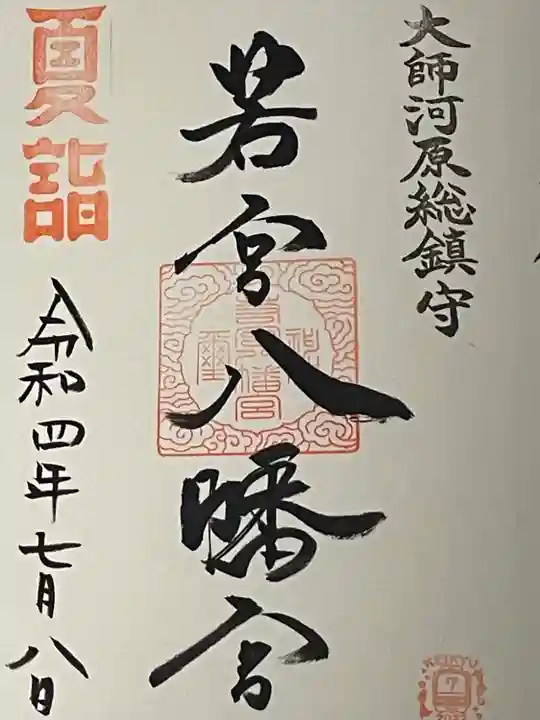 大師河原総鎮守
若宮八幡宮
夏詣
令和四年七月八日
KEIKYU
7